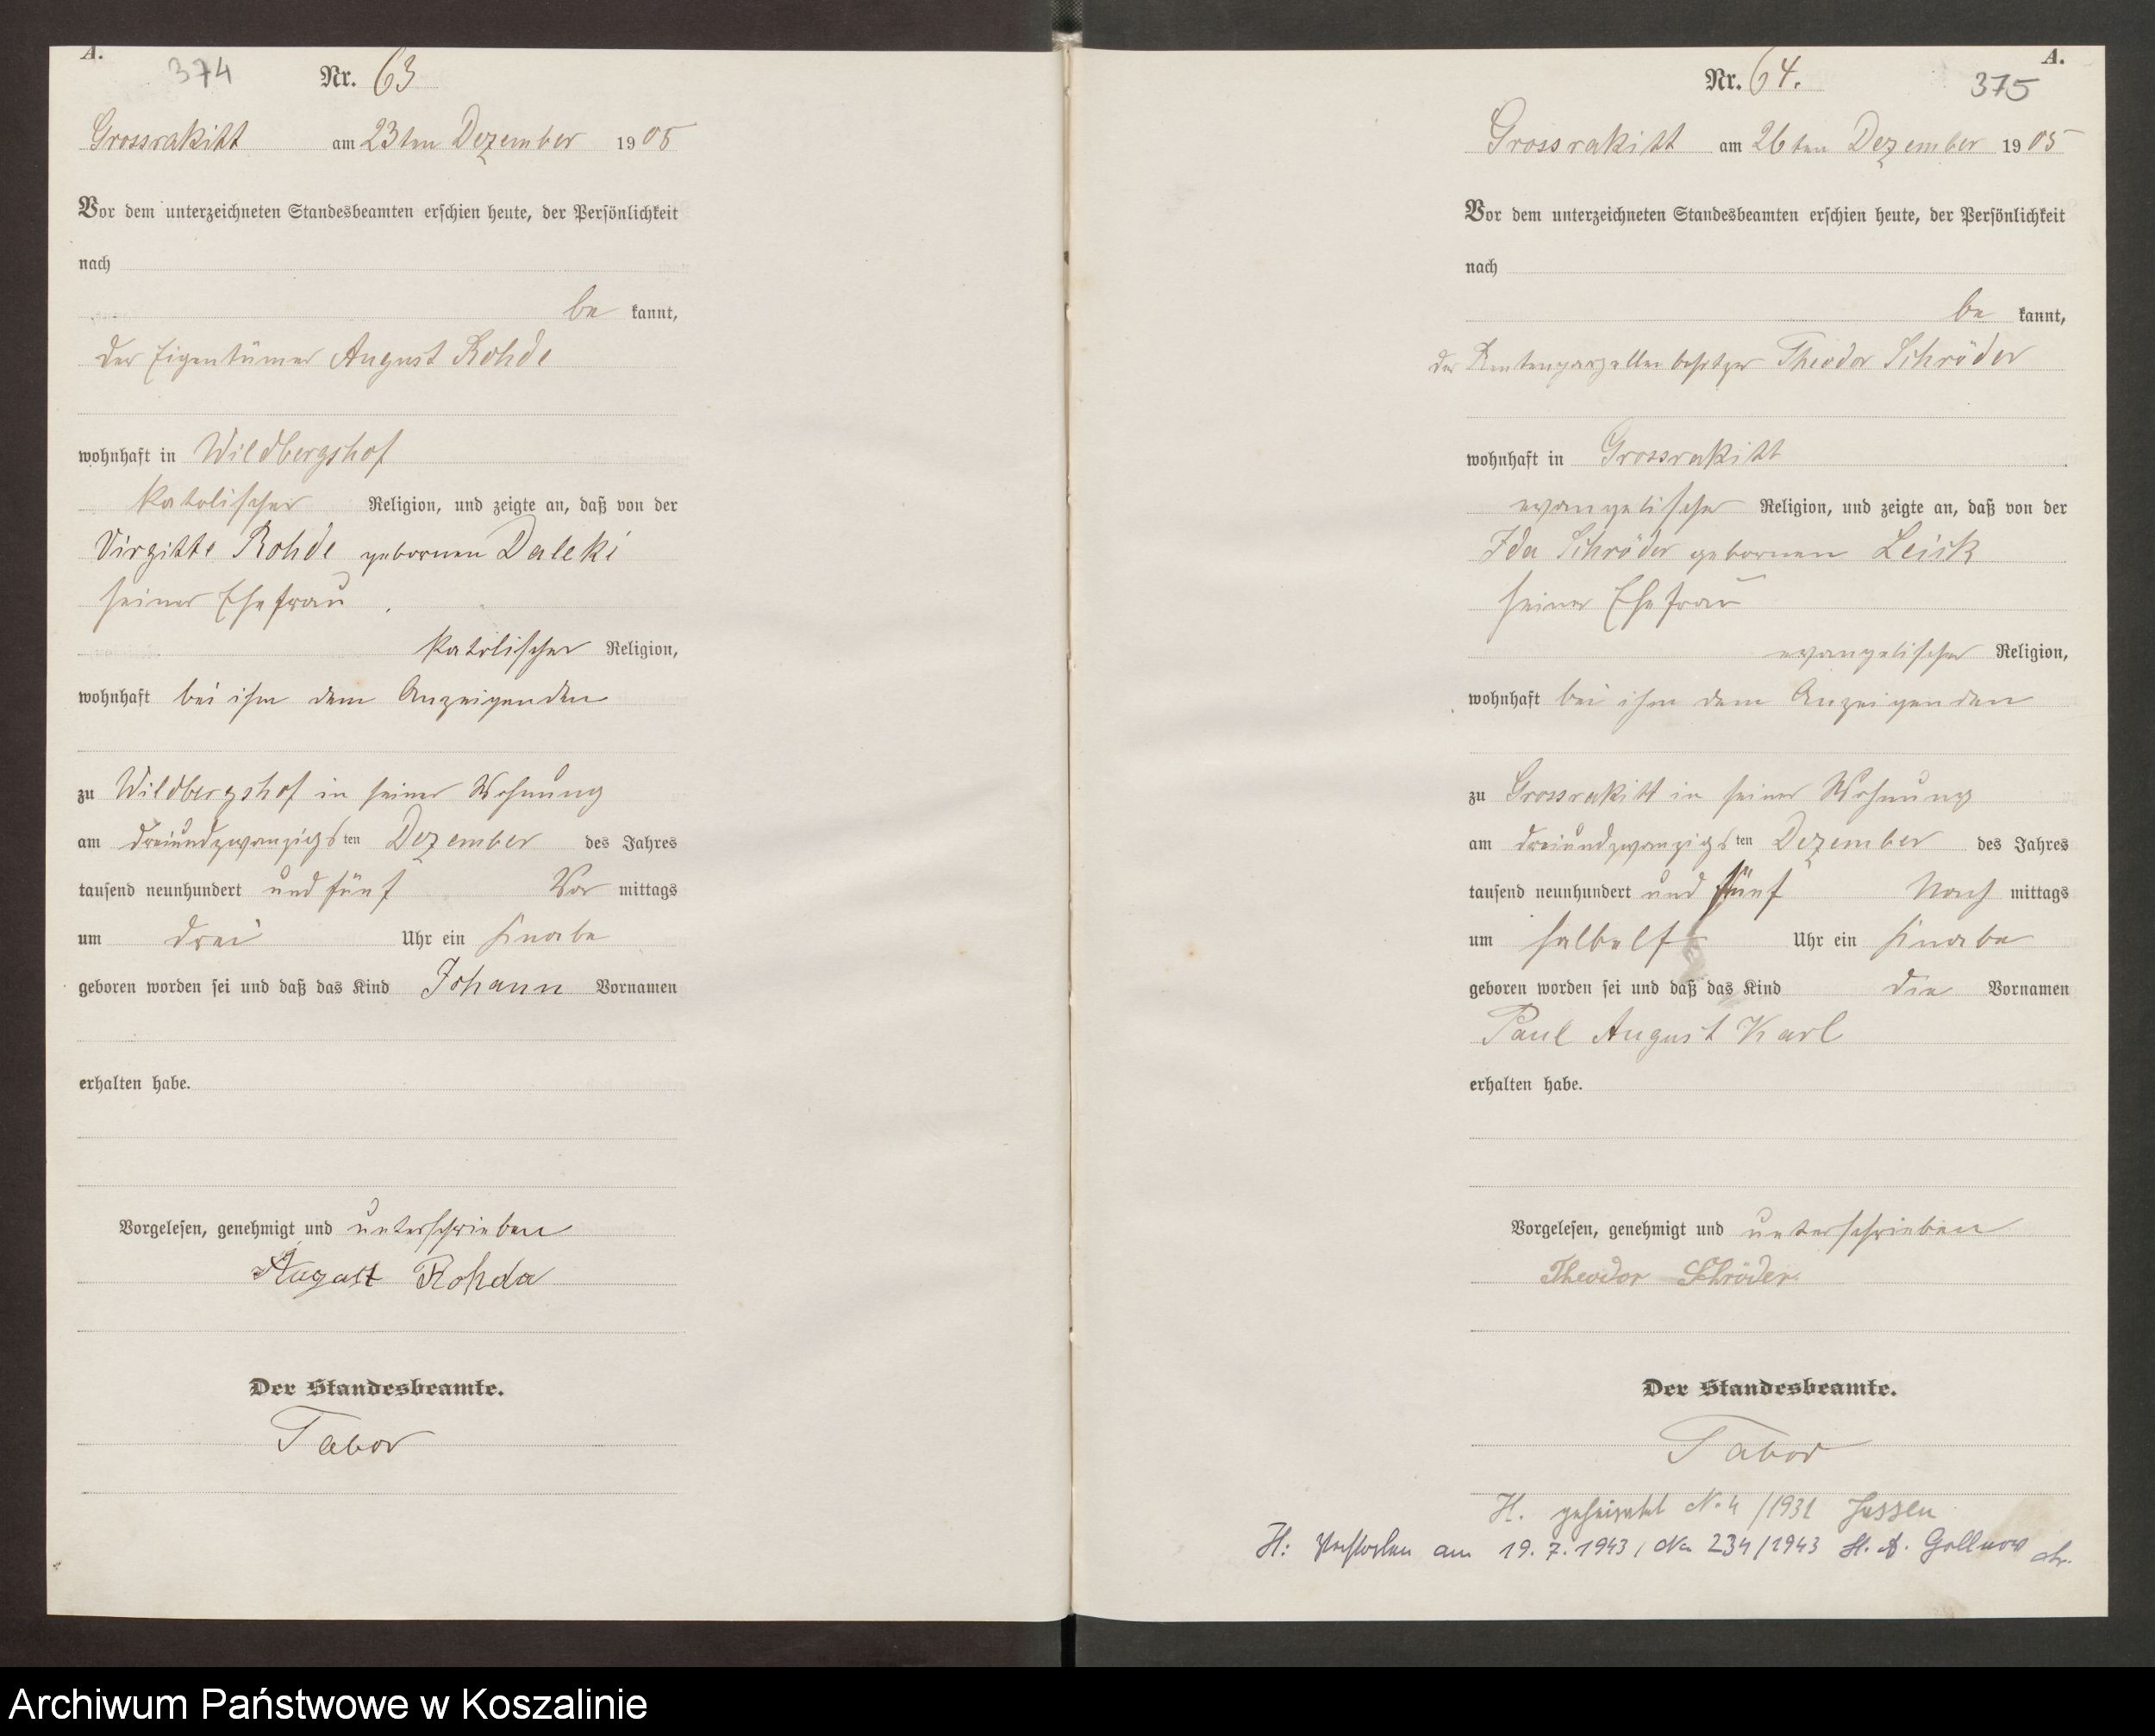 A.
374
Nr. 63
Grossrakitt am 23ten Dezember 1905
Vor dem unterzeichneten Standesbeamten erschien heute, der Persönlichkeit
nach
be kannt,
der Eigentümer August Rohde
wohnhaft in Wildbergshof
katolischer Religion, und zeigte an, daß von der
Virgitte Rohde gebornen Daleki
seiner Ehefrau
katolischer Religion,
wohnhaft bei ihm dem Anzeigenden
zu Wildbergshof in seiner Wohnung
am dreiundzwanzigsten Dezember des Jahres
tausend neunhundert und fünf Vor mittags
um drei Uhr ein Knabe
geboren worden sei und daß das Kind Johann Vornamen
erhalten habe.
Vorgelesen, genehmigt und unterschrieben
August Rohde
Der Standesbeamte.
Tabor
A.
Nr. 64.
375
Grossrakitt am 26ten Dezember 1905
Vor dem unterzeichneten Standesbeamten erschien heute, der Persönlichkeit
nach
be kannt,
der Rentenparzellenbesitzer Theodor Schröder
wohnhaft in Grossrakitt
evangelischer Religion, und zeigte an, daß von der
Ida Schröder gebornen Leisk
seiner Ehefrau
evangelischer Religion,
wohnhaft bei ihm dem Anzeigenden
zu Grossrakitt in seiner Wohnung
am dreiundzwanzigsten Dezember des Jahres
tausend neunhundert und fünf Nach mittags
um halbelf Uhr ein Knabe
geboren worden sei und daß das Kind die Vornamen
Paul August Karl
erhalten habe.
Vorgelesen, genehmigt und unterschrieben
Theodor Schröder.
Der Standesbeamte.
Tabor
H. geheiratet No 4/1931 Jassen
H: Verstorben am 19.7.1943, No 234/1943 St. A. Gollnow
Archiwum Państwowe w Koszalinie